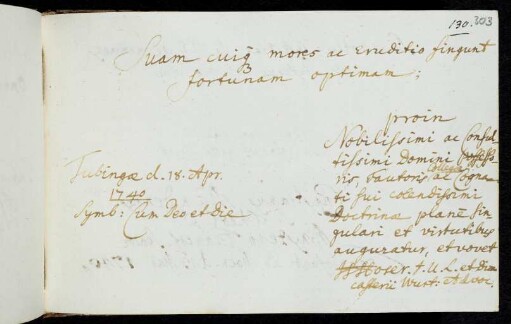 130. 203
Suam cuiq3 mores ac Eruditio fingunt
fortunam optimam;
proin
Nobilissimi ac Consul
tissimi Domini Possesso
ris, Fautoris, Collegæ ac Cogna
ti sui colendissimi
Doctrinæ planè sin
gulari et virtutibus
auguratur, et vovet
Hoser. J. U. L. et
Wurt. Advoc.
Tubingæ d. 18. Apr.
1740
Symb: Cum Deo et die